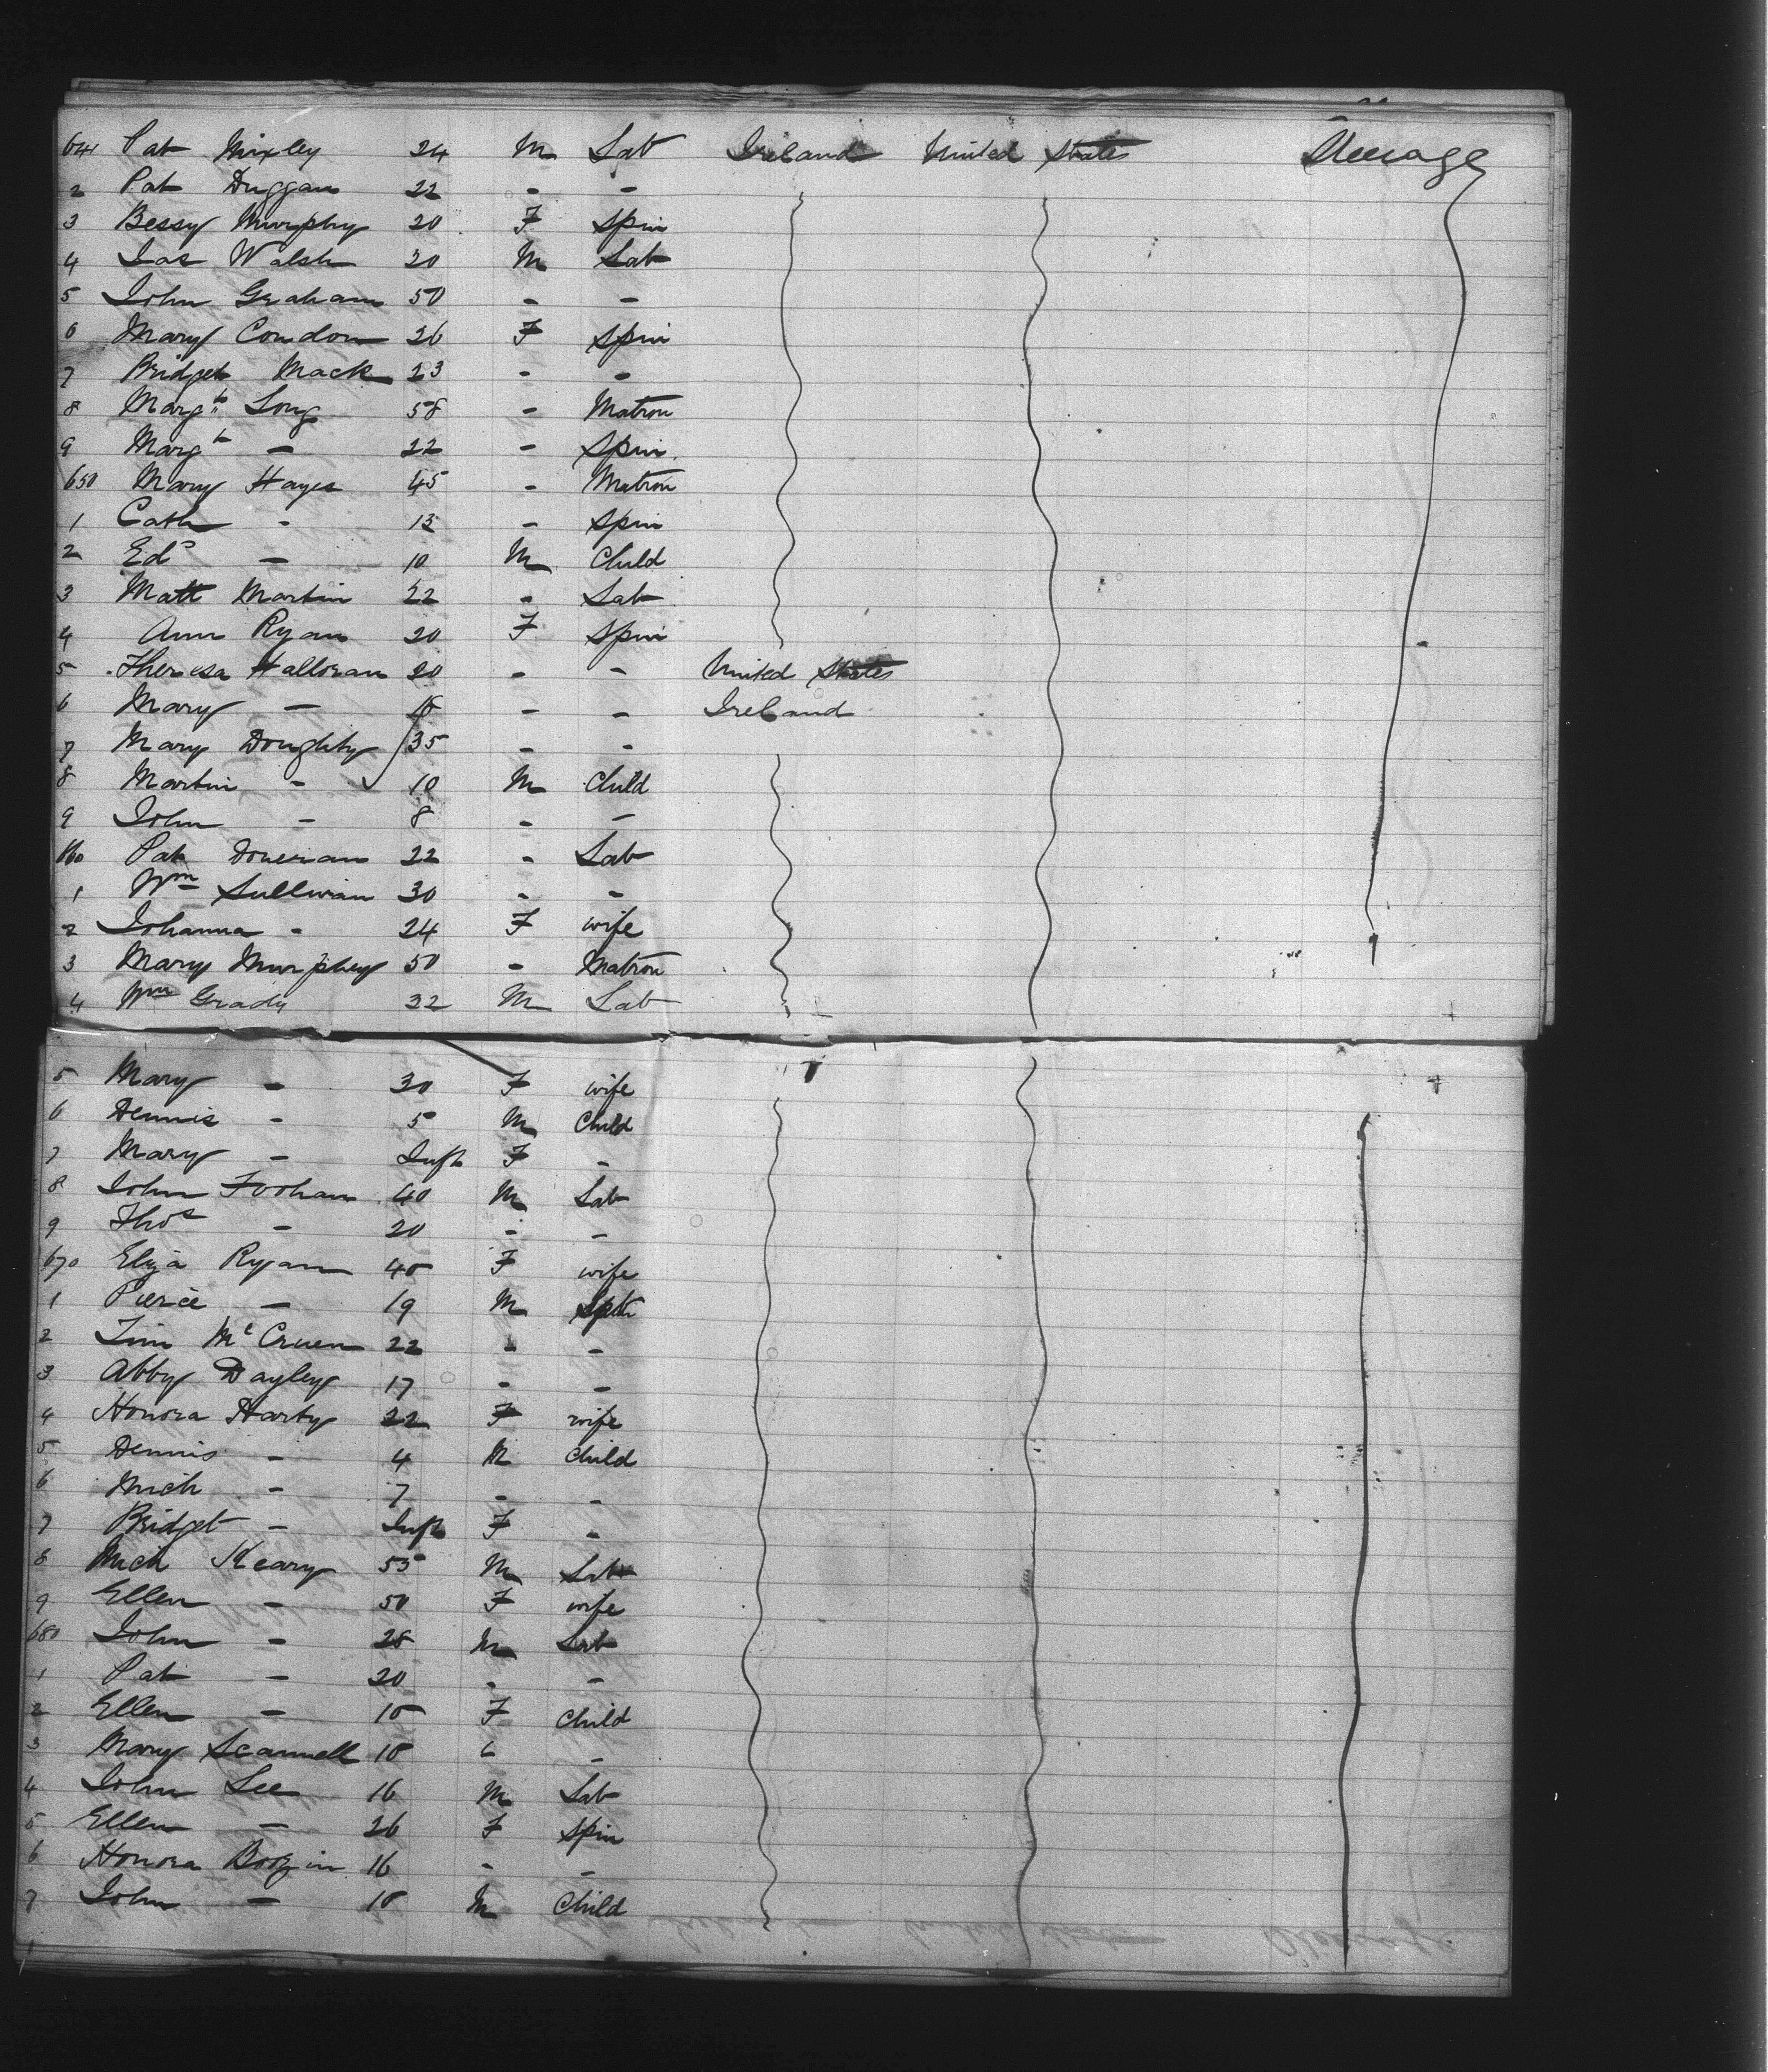 641 Pat Mixley 24 M Lab Ireland United States Steerage
2 Pat Duggan 22 - -
3 Bessy Murphy 20 F Spin
4 Jas Walsh 20 M Lab
5 John Graham 50 - -
6 Mary Condon 26 F Spin
7 Bridget Mack 23 - -
8 Margt Long 58 - Matron
9 Margt - 22 - Spin.
650 Mary Hayes 45 - Matron
1 Cath - 13 - Spin
2 Edd - 10 M Child
3 Matt Martin 22 - Lab
4 Ann Ryan 20 F Spin
5 Theresa Halloran 20 - - United States
6 Mary - 18 - - Ireland
7 Mary Doughty 35 - -
8 Martin - 10 M Child
9 John - 8 - -
660 Pat Doneran 22 - Lab
1 Wm Sullivan 30 - -
2 Johanna - 24 F wife
3 Mary Murphey 50 - Matron
4 Wm Grady 32 M Lab
5 Mary - 30 F wife
6 Dennis - 5 M Child
7 Mary - Inft F -
8 John Foohan 40 M Lab
9 Thos - 20 - -
670 Eliza Ryan 40 F wife
1 Pierce - 19 M
2 Tim McCruen 22 - -
3 Abby Dayley 17 - -
4 Honora Harty 22 F wife
5 Dennis - 4 M Child
6 Mich - 7 - -
7 Bridget - Inft F -
8 Mich Keary 55 M Lab
9 Ellen - 50 F wife
680 John - 28 M Lab
1 Pat - 20 - -
2 Ellen - 10 F Child
3 Mary Scannell 18 -
4 John Lee 16 M Lab
5 Ellen - 26 F Spin
6 Honora 16 - -
7 John - 10 M Child